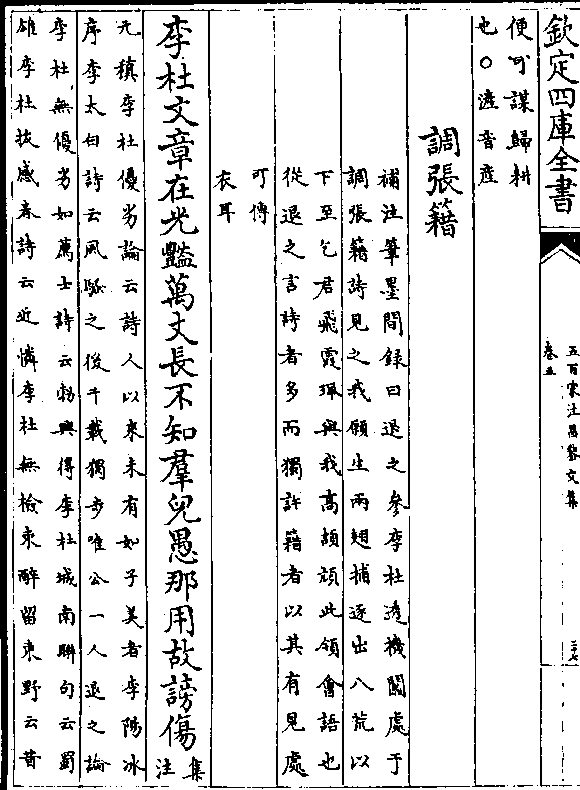 欽定四庫全書
五百家注昌黎文集
卷五
二十七
便可謀歸耕
也○滻音産
調張籍
補注筆墨間録曰退之參李杜透機關處于
調張籍詩見之我願生兩翅捕逐出八荒以
下至乞君飛霞珮與我高頡頏此領會語也
從退之言詩者多而獨許籍者以其有見處
可傳
衣耳
李杜文章在光豔萬丈長不知羣兒愚那用故謗傷
集
注
元稹李杜優劣論云詩人以來未有如子美者李陽冰
序李太白詩云風騷之後千載獨步唯公一人退之論
李杜無優劣如薦士詩云勃興得李杜城南聯句云蜀
雄李杜拔感春詩云近憐李杜無檢束醉留東野云昔